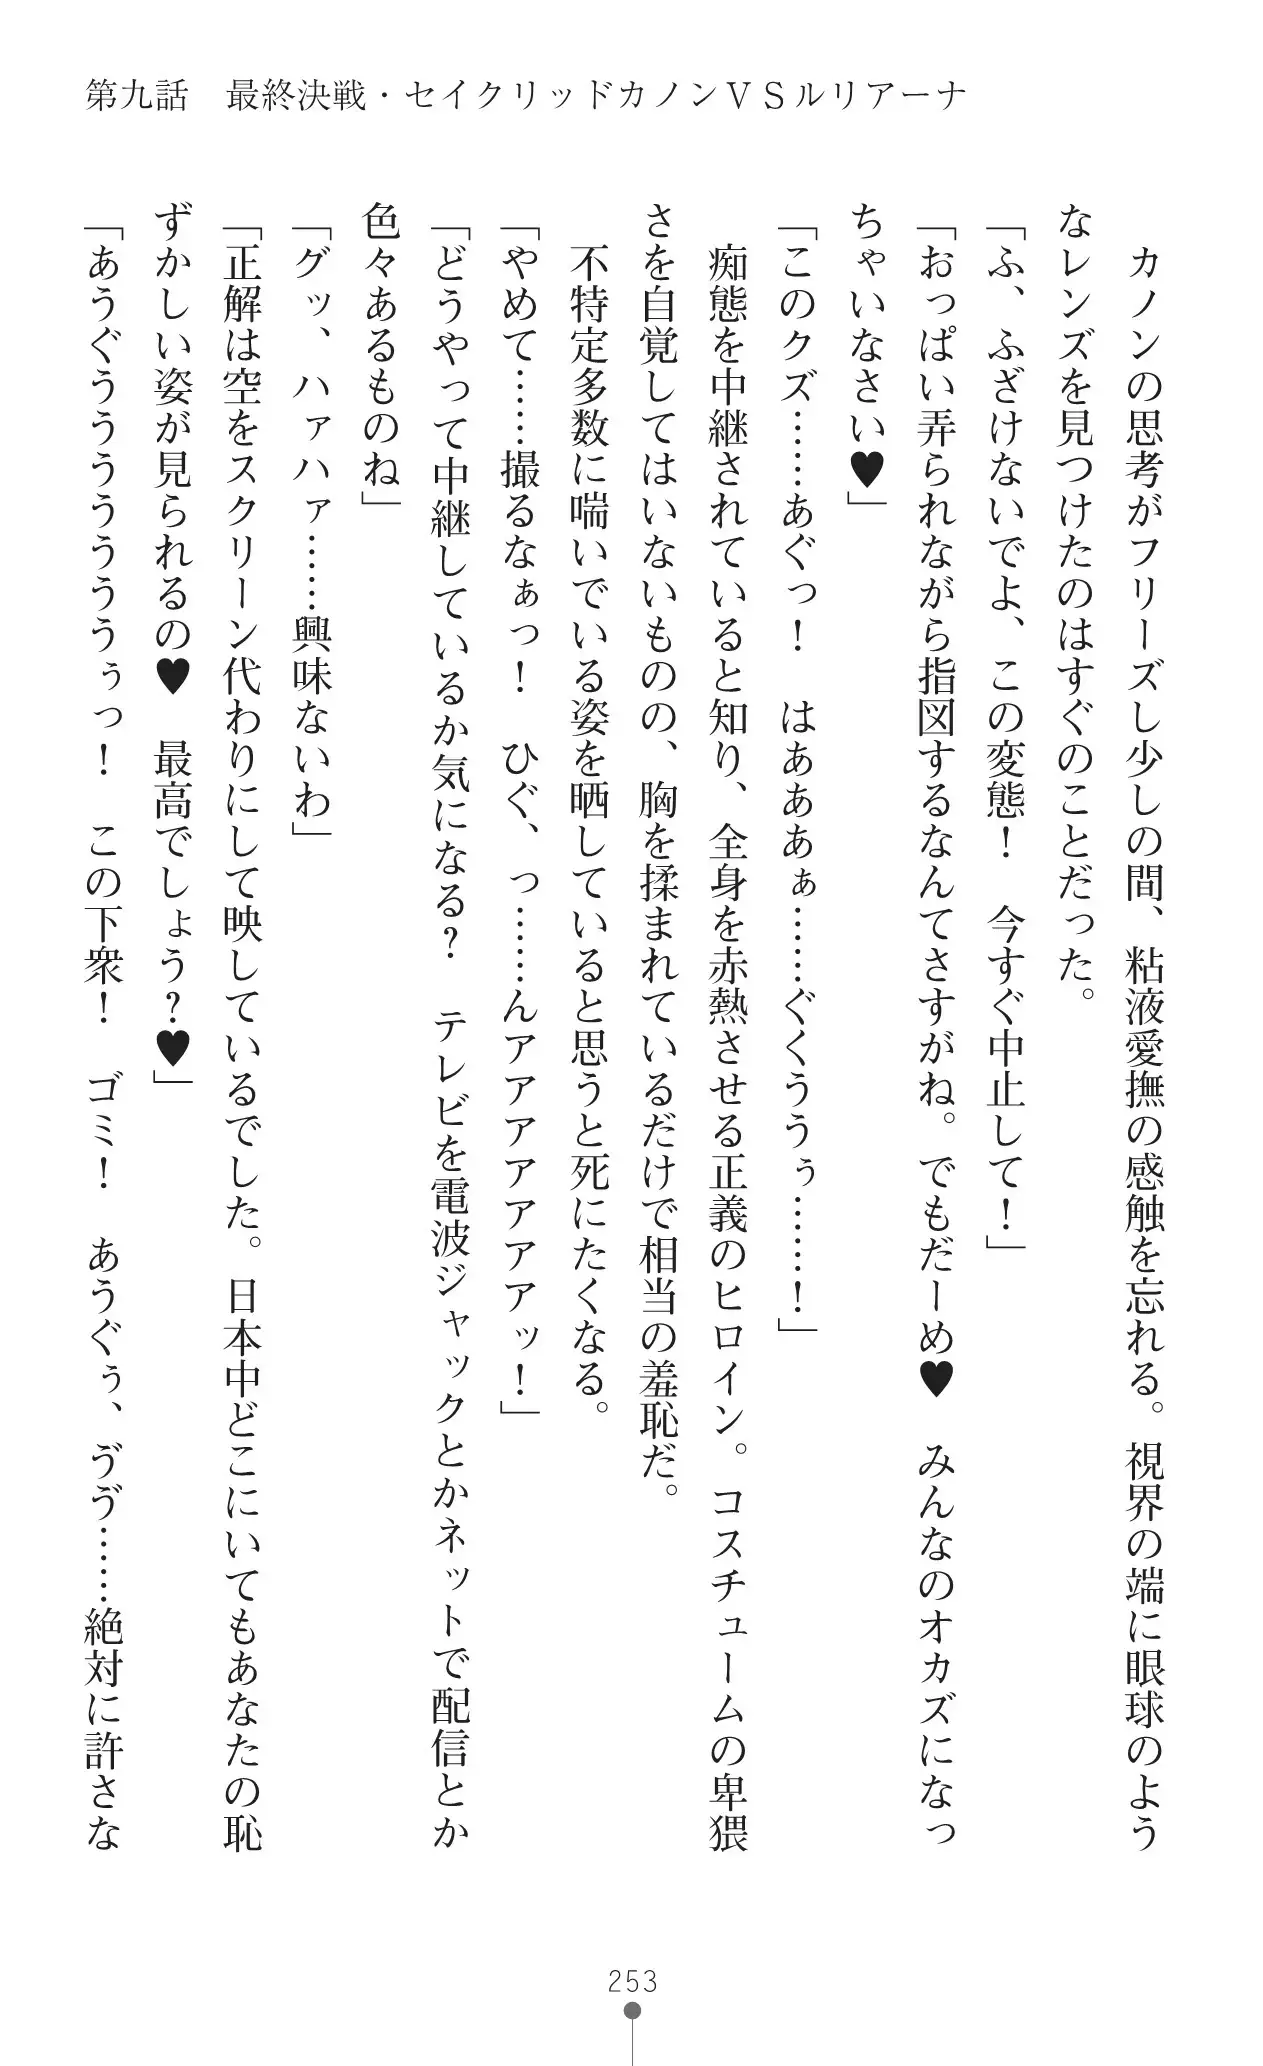 第九話　最終決戦・セイクリッドカノンＶＳルリアーナ
　カノンの思考がフリーズし少しの間、粘液愛撫の感触を忘れる。視界の端に眼球のよう
なレンズを見つけたのはすぐのことだった。
「ふ、ふざけないでよ、この変態！　今すぐ中止して！」
「おっぱい弄られながら指図するなんてさすがね。でもだーめ♥　みんなのオカズになっ
ちゃいなさい♥」
「このクズ……あぐっ！　はあああぁ……ぐくううぅ……！」
　痴態を中継されていると知り、全身を赤熱させる正義のヒロイン。コスチュームの卑猥
さを自覚してはいないものの、胸を揉まれているだけで相当の羞恥だ。
　不特定多数に喘いでいる姿を晒していると思うと死にたくなる。
「やめて……撮るなぁっ！　ひぐ、っ……んアアアアアアアッ！」
「どうやって中継しているか気になる？　テレビを電波ジャックとかネットで配信とか
色々あるものね」
「グッ、ハァハァ……興味ないわ」
「正解は空をスクリーン代わりにして映しているでした。日本中どこにいてもあなたの恥
ずかしい姿が見られるの♥　最高でしょう？♥」
「あうぐうううううううぅっ！　この下衆！　ゴミ！　あうぐぅ、ゔゔ……絶対に許さな
253